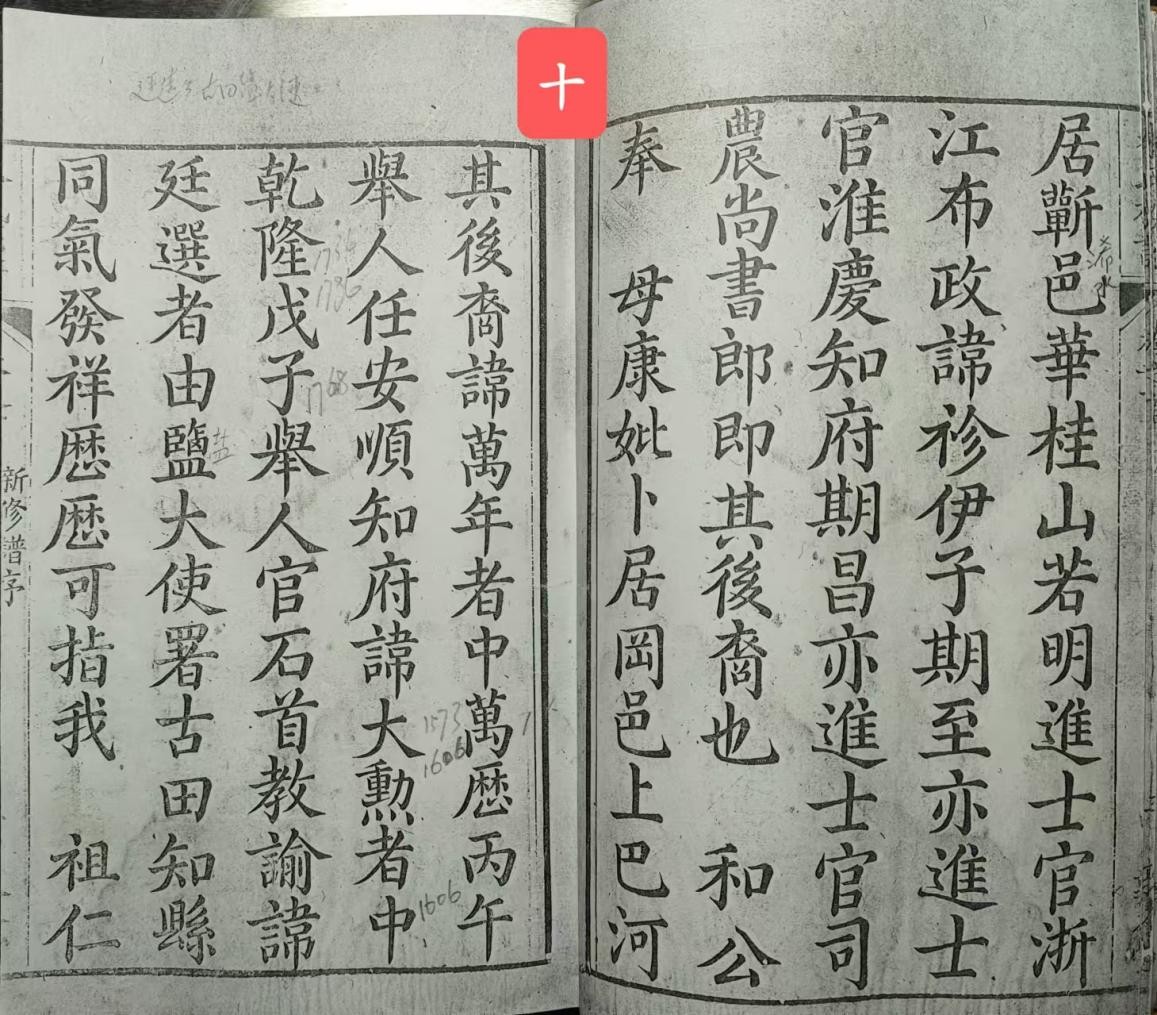 十
居蘄邑華桂山若明進士官浙
江布政諱袗伊子期至亦進士
官淮慶知府期昌亦進士官司
農尚書郎即其後裔也 和公
奉 母康妣卜居岡邑上巴河
其後裔諱萬年者中萬歷丙午
舉人任安順知府諱大勲者中
乾隆戊子舉人官石首教諭諱
廷選者由鹽大使署古田知縣
同氣發祥歷歷可指我 祖仁
新修譜序
浠水
1573
1606
1606
1736
1768
盐